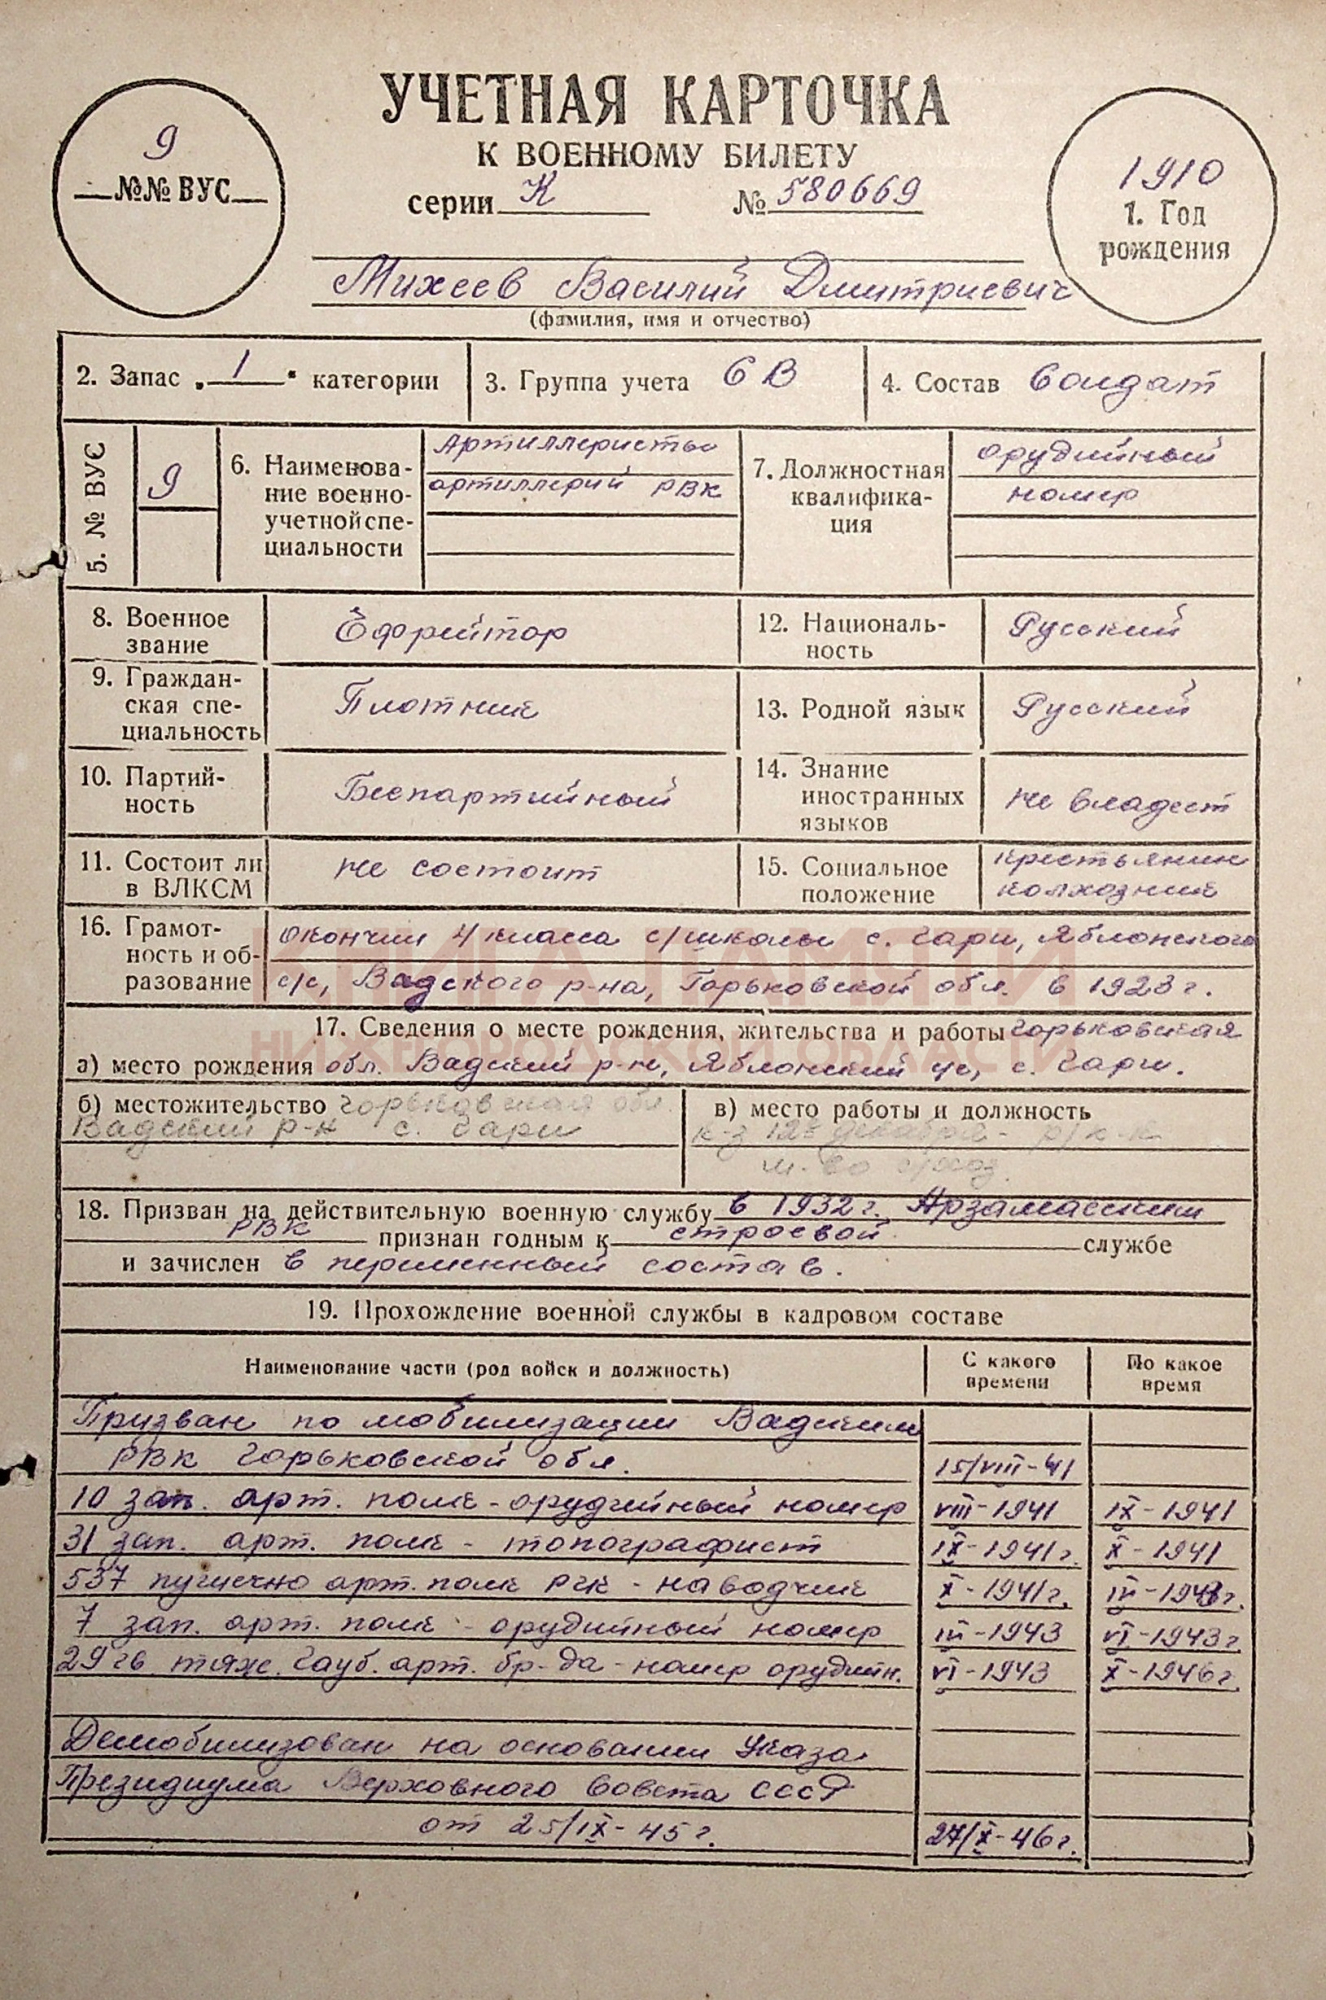 УЧЕТНАЯ КАРТОЧКА
К ВОЕННОМУ БИЛЕТУ
серии К № 580669
9
№№ ВУС
1910
1. Год
рождения
Михеев Василий Дмитриевич
(фамилия, имя и отчество)
2. Запас „ 1 “ категории
3. Группа учета 6 В
4. Состав Солдат
5. № ВУС
9
6. Наименова-
ние военно-
учетной спе-
циальности
Артиллеристы
артиллерий РВК
7. Должностная
квалифика-
ция
орудийный
номер
8. Военное
звание
Ефрейтор
12. Националь-
ность
Русский
9. Граждан-
ская спе-
циальность
Плотник
13. Родной язык
Русский
10. Партий-
ность
Беспартийный
14. Знание
иностранных
языков
не владеет
11. Состоит ли
в ВЛКСМ
не состоит
15. Социальное
положение
крестьянин
колхозник
16. Грамот-
ность и об-
разование
окончил 4 класса с/школы с. Гари, Яблонского
с/с, Вадского р-на, Горьковской обл. в 1923 г.
КНИГА ПАМЯТИ
НИЖЕГОРОДСКОЙ ОБЛАСТИ
17. Сведения о месте рождения, жительства и работы Горьковская
а) место рождения обл. Вадский р-н, Яблонский с/с, с. Гари.
б) местожительство Горьковская обл.
Вадский р-н с. Гари
в) место работы и должность
к-з 12 декабря -
18. Призван на действительную военную службу в 1932 г. Арзамасским
РВК признан годным к строевой службе
и зачислен в переменный состав.
19. Прохождение военной службы в кадровом составе
Наименование части (род войск и должность)
С какого
времени
По какое
время
Призван по мобилизации Вадским
РВК Горьковской обл. 15/VIII-41
10 зап. арт. полк - орудийный номер VIII-1941 IX-1941
31 зап. арт. полк - топографист IX-1941г. X-1941
537 пушечно арт. полк РГК - наводчик X-1941г. III-1943г.
7 зап. арт. полк - орудийный номер III-1943 VI-1943г.
29 гв тяж. гауб. арт. бр-да - номер орудийн. VI-1943 X-1946г.
Демобилизован на основании Указа
Президиума Верховного Совета СССР
от 25/IX-45г. 27/X-46г.